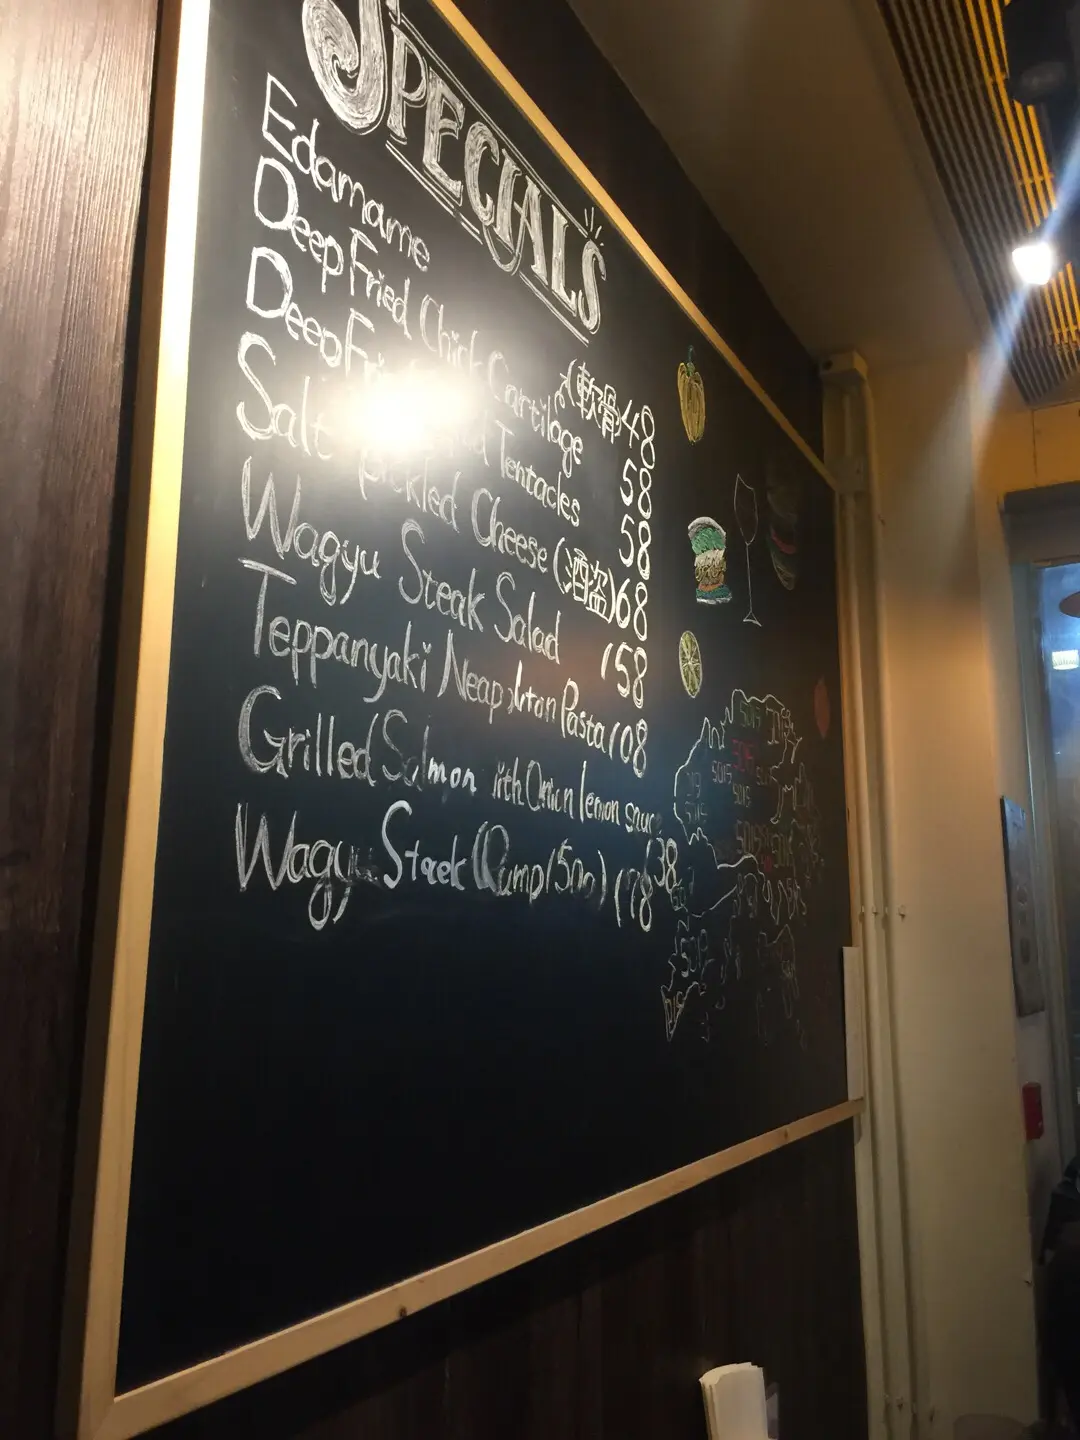 SPECIALS
Edamame 48
Deep Fried Chick Cartilage (軟骨) 58
Deep Tentacles 58
Salt pickled Cheese (酒盗) 68
Wagyu Steak Salad 158
Teppanyaki Neapolitan Pasta 108
Grilled Salmon with Onion lemon sauce 138
Wagyu Steak Rump 178